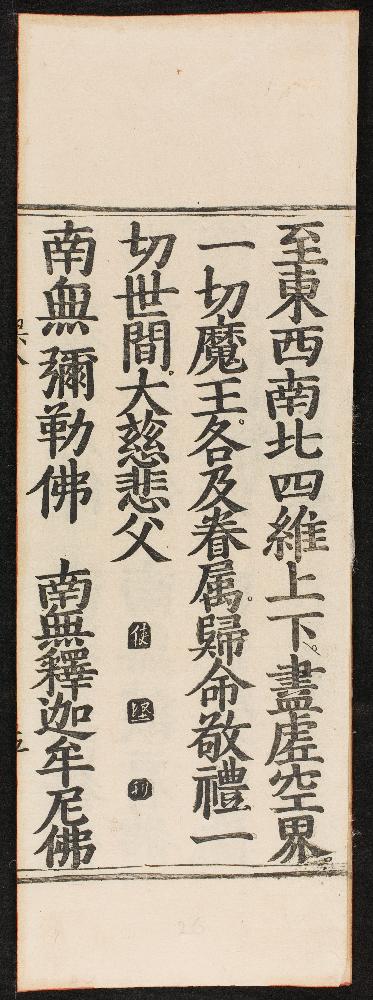 至東西南北四維上下。盡虛空界
一切魔王。各及眷属。歸命敬禮一
切世間。大慈悲父
南無彌勒佛　南無釋迦牟尼佛
26